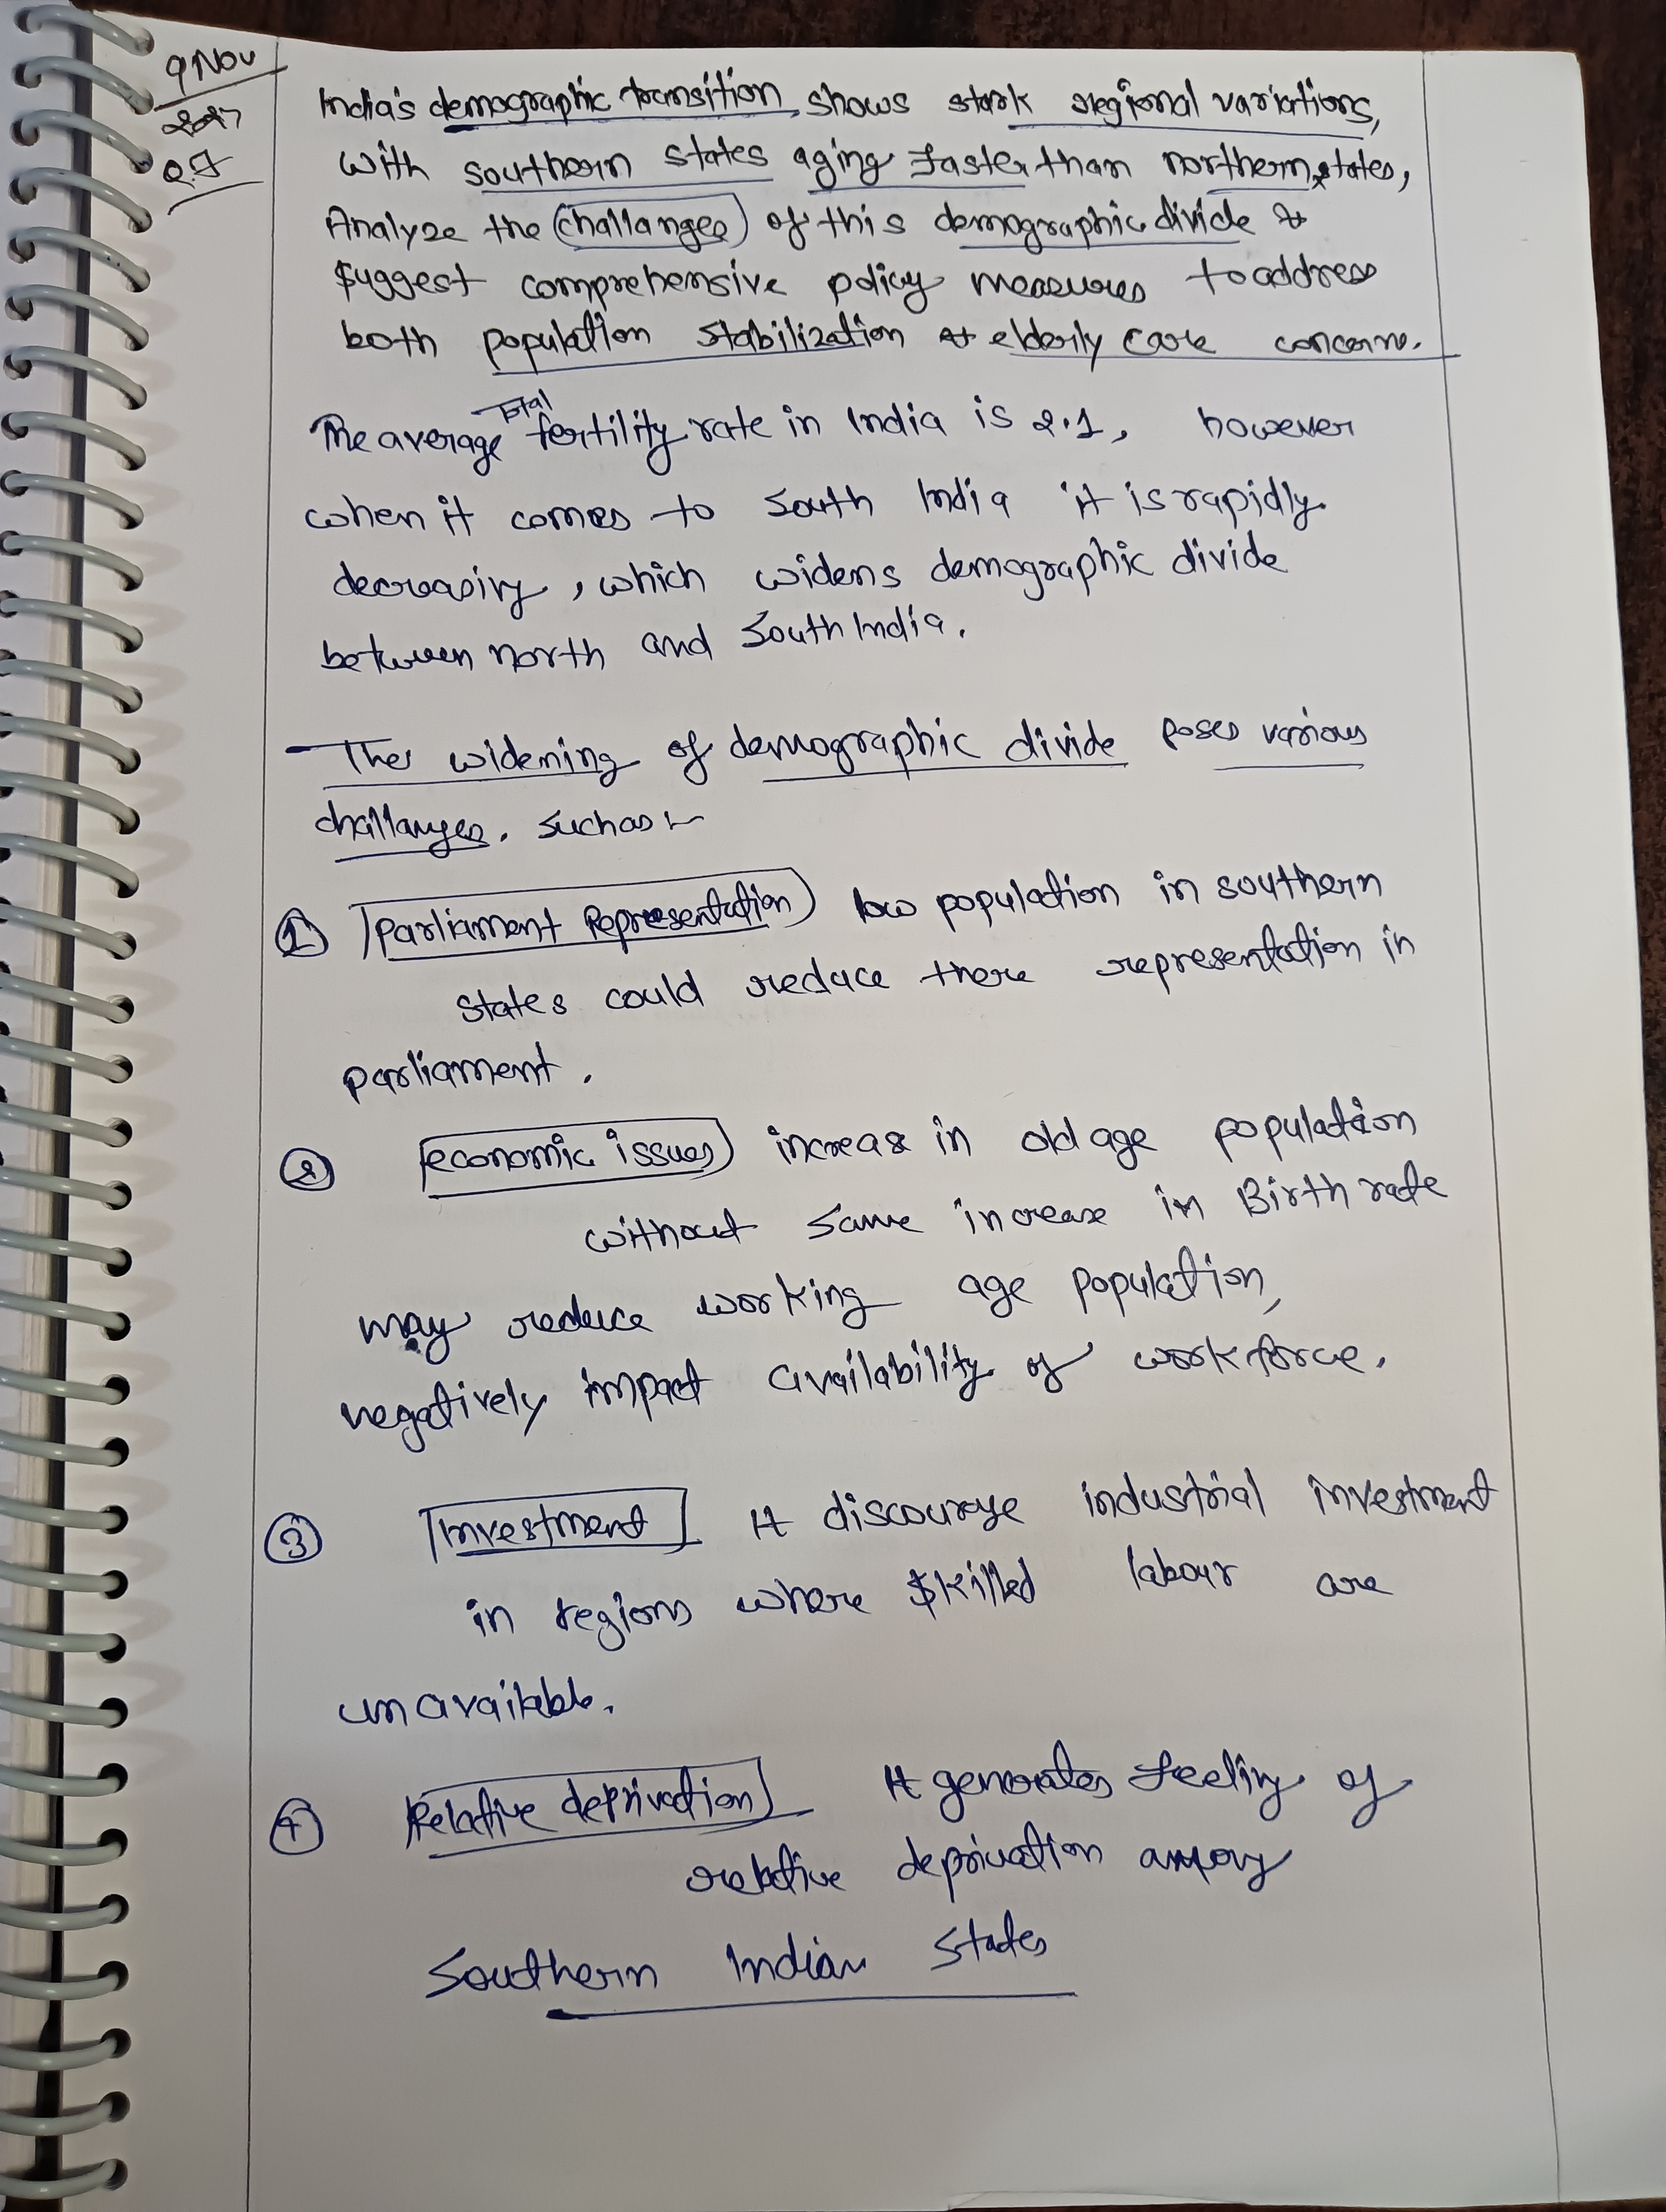 9 Nov
Q.7
India's demographic transition shows stark regional variations,
with southern states aging faster than northern states,
Analyze the challanges of this demographic divide &
suggest comprehensive policy measures to address
both population stabilization & elderly care concerns.
The average Total fertility rate in India is 2.1, however
when it comes to South India it is rapidly
decreasing, which widens demographic divide
between north and South India.
- The widening of demographic divide poses various
challanges. Such as :-
① Parliament Representation low population in southern
states could reduce there representation in
parliament.
② economic issues increase in old age population
without same increase in Birth rate
may reduce working age population,
negatively impact availability of workforce.
③ Investment It discourage industrial investment
in regions where skilled labour are
unavailable.
④ Relative deprivation It generates feeling of
relative deprivation among
Southern Indian States